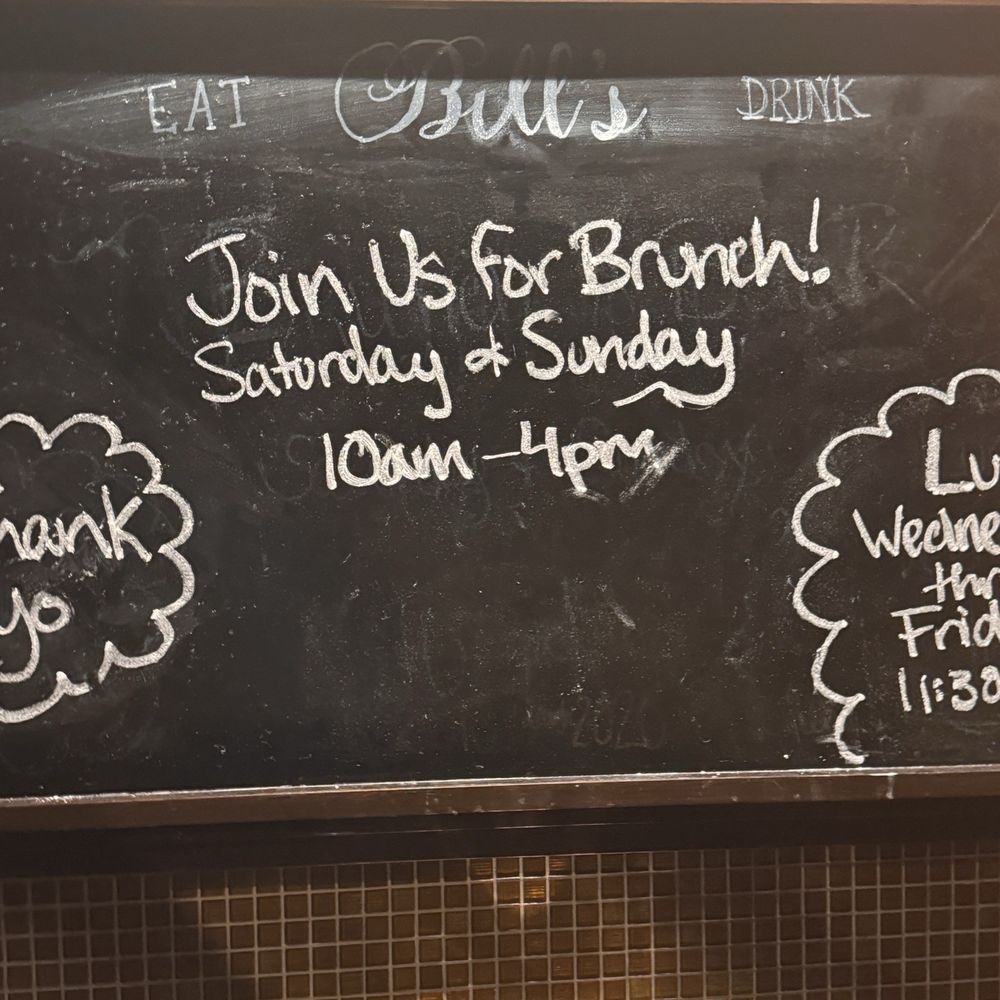 EAT Bill's DRINK
Join Us for Brunch!
Saturday & Sunday
10am - 4pm
hank
yo
Lu
Wedne
thr
Frid
11:30